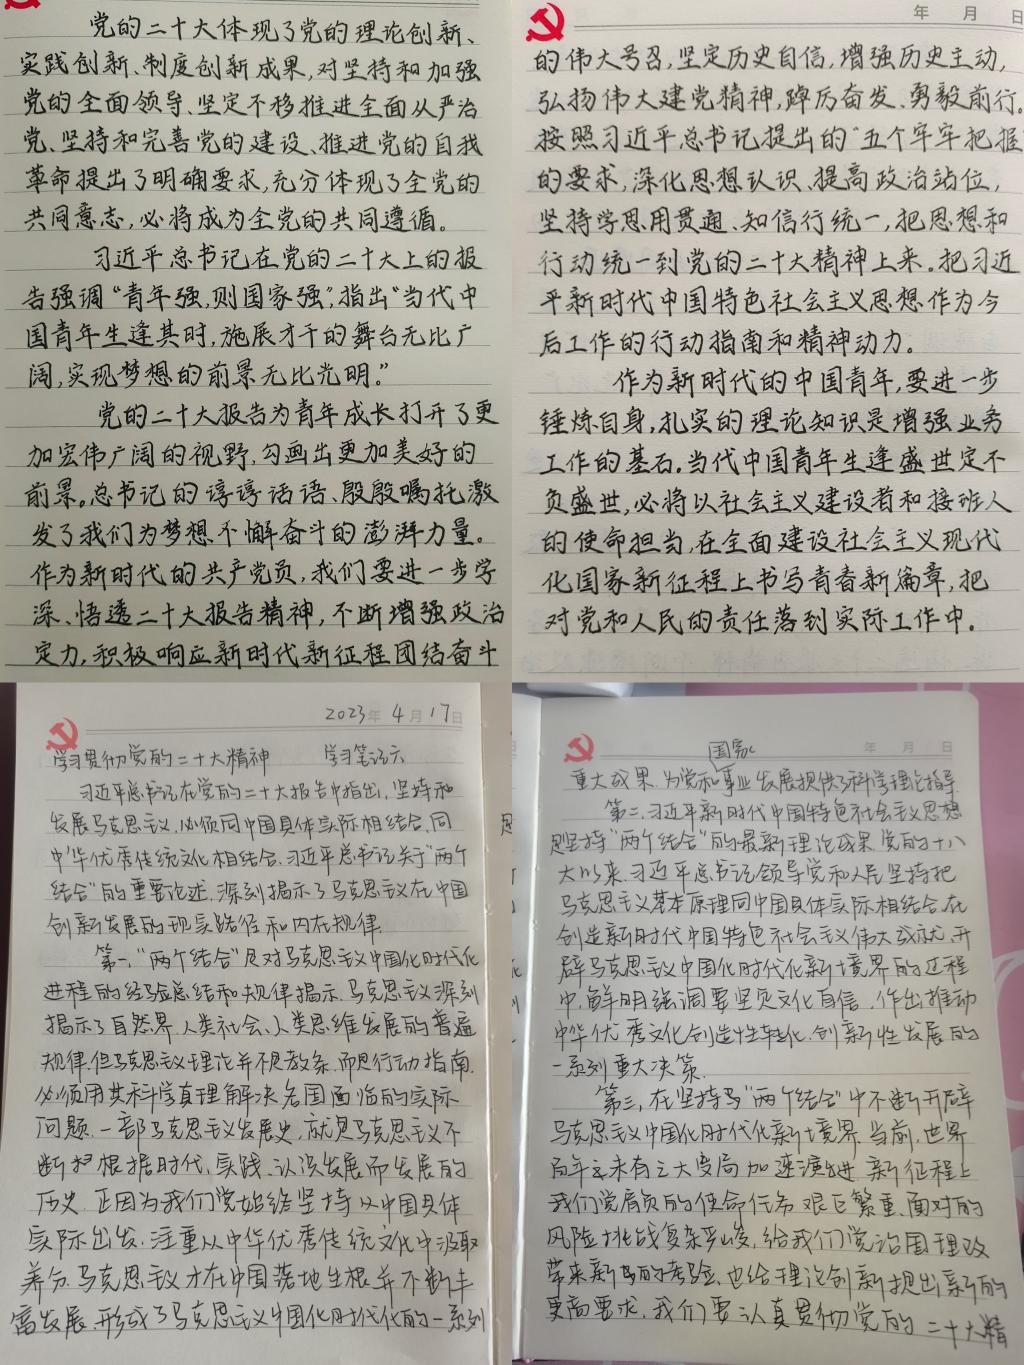 党的二十大体现了党的理论创新、
实践创新、制度创新成果,对坚持和加强
党的全面领导、坚定不移推进全面从严治
党、坚持和完善党的建设、推进党的自我
革命提出了明确要求,充分体现了全党的
共同意志,必将成为全党的共同遵循。
习近平总书记在党的二十大上的报
告强调“青年强,则国家强”,指出“当代中
国青年生逢其时,施展才干的舞台无比广
阔,实现梦想的前景无比光明。”
党的二十大报告为青年成长打开了更
加宏伟广阔的视野,勾画出更加美好的
前景。总书记的谆谆话语、殷殷嘱托激
发了我们为梦想不懈奋斗的澎湃力量。
作为新时代的共产党员,我们要进一步学
深、悟透二十大报告精神,不断增强政治
定力,积极响应新时代新征程团结奋斗
年 月 日
的伟大号召,坚定历史自信,增强历史主动,
弘扬伟大建党精神,踔厉奋发、勇毅前行。
按照习近平总书记提出的“五个牢牢把握
的要求,深化思想认识、提高政治站位,
坚持学思用贯通、知信行统一,把思想和
行动统一到党的二十大精神上来。把习近
平新时代中国特色社会主义思想作为今
后工作的行动指南和精神动力。
作为新时代的中国青年,要进一步
锤炼自身,扎实的理论知识是增强业务
工作的基石。当代中国青年生逢盛世定不
负盛世,必将以社会主义建设者和接班人
的使命担当,在全面建设社会主义现代
化国家新征程上书写青春新篇章,把
对党和人民的责任落到实际工作中。
2023年 4月 17日
学习贯彻党的二十大精神 学习笔记六
习近平总书记在党的二十大报告中指出,坚持和
发展马克思主义,必须同中国具体实际相结合,同
中华优秀传统文化相结合.习近平总书记关于“两个
结合”的重要论述,深刻揭示了马克思主义在中国
创新发展的现实路径和内在规律.
第一,“两个结合”是对马克思主义中国化时代化
进程的经验总结和规律揭示.马克思主义深刻
揭示了自然界、人类社会、人类思维发展的普遍
规律.但马克思主义理论并不是教条,而是行动指南.
必须用其科学真理解决各国面临的实际
问题.一部马克思主义发展史,就是马克思主义不
断根据时代、实践、认识发展而发展的
历史.正因为我们党始终坚持从中国具体
实际出发,注重从中华优秀传统文化中汲取
养分.马克思主义才在中国落地生根并不断丰
富发展.形成了马克思主义中国化时代化的一系列
年 月 日
国家
重大成果.为党和事业发展提供了科学理论指导.
第二.习近平新时代中国特色社会主义思想
是坚持“两个结合”的最新理论成果.党的十八
大以来.习近平总书记领导党和人民坚持把
马克思主义基本原理同中国具体实际相结合.在
创造新时代中国特色社会主义伟大成就.开
辟马克思主义中国化时代化新境界的过程
中.鲜明强调要坚定文化自信.作出推动
中华优秀文化创造性转化.创新性发展的
一系列重大决策.
第三,在坚持马“两个结合”中不断开辟
马克思主义中国化时代化新境界.当前.世界
百年之未有之大变局加速演进.新征程上
我们党肩负的使命任务艰巨繁重.面对的
风险挑战复杂严峻,给我们党治国理政
带来新的考验.也给理论创新提出新的
更高要求.我们要认真贯彻党的二十大精